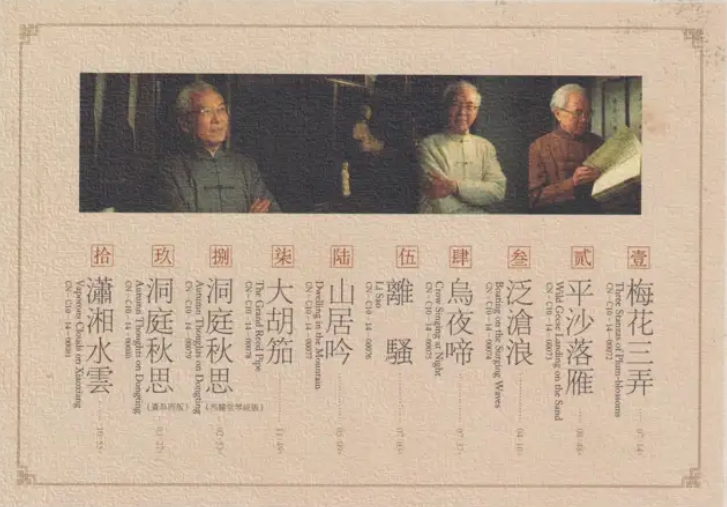 壹
梅花三弄
Three Stanzas of Plum-blossoms
CN - C10 - 14 - 00072
貳
平沙落雁
Wild Geese Landing on the Sand
CN - C10 - 14 - 00073
叁
泛滄浪
Boating on the Surging Waves
CN - C10 - 14 - 00074
肆
烏夜啼
Crow Singing at Night
CN - C10 - 14 - 00075
伍
離騷
Li Sao
CN - C10 - 14 - 00076
陆
山居吟
Dwelling in the Mountain
CN - C10 - 14 - 00077
柒
大胡笳
The Grand Reed Pipe
CN - C10 - 14 - 00078
捌
洞庭秋思
Autumn Thoughts on Dongting
CN - C10 - 14 - 00079
玖
洞庭秋思
Autumn Thoughts on Dongting
CN - C10 - 14 - 00080
拾
瀟湘水雲
Vaporous Clouds on Xiaoxiang
CN - C10 - 14 - 00081